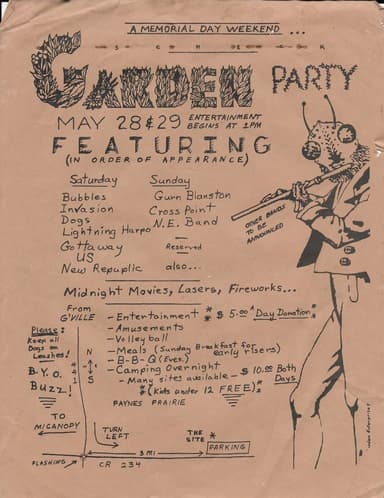 A MEMORIAL DAY WEEKEND ...
GARDEN PARTY
MAY 28 & 29 ENTERTAINMENT BEGINS AT 1PM
FEATURING
(IN ORDER OF APPEARANCE)
Saturday
Bubbles
Invasion
Dogs
Lightning Harpo
Gottaway
US
New Republic
Sunday
Gurn Blanston
Cross Point
N.E. Band
Reserved
also...
OTHER BANDS TO BE ANNOUNCED
Midnight Movies, Lasers, Fireworks...
From G'VILLE
- Entertainment * $5.00 Day Donation *
- Amusements
- Volleyball
- Meals (Sunday Breakfast for early risers)
- B-B-Q (Eves.)
- Camping Overnight
- Many sites available - $10.00 Both Days
* (Kids under 12 FREE) *
Please:
Keep all
Dogs on
Leashes!
B.Y.O.
Buzz!
N
441
S
PAYNES PRAIRIE
TO MICANOPY
TURN LEFT
THE SITE *
PARKING
3 MI
FLASHING
CR 234